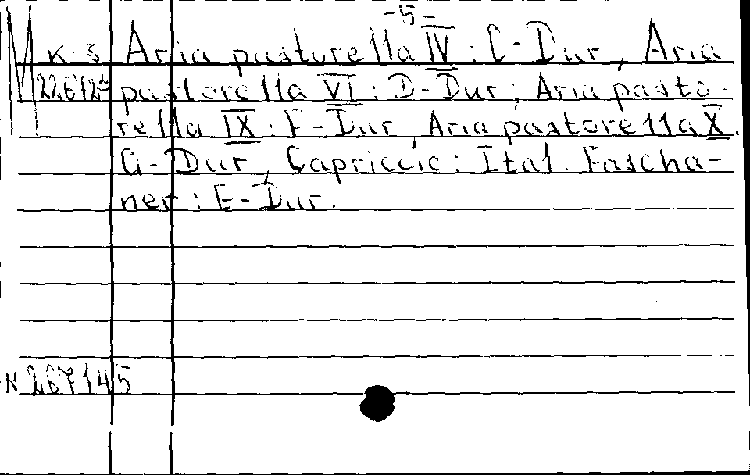 -5-
M K. S. Aria pastorella IV : C-Dur, Aria
22612² pastorella VI : D-Dur; Aria pasto-
rella IX : F-Dur, Aria pastorella X.
G-Dur, Capriccio: Ital. Fascha-
ner : E-Dur.
N 267145